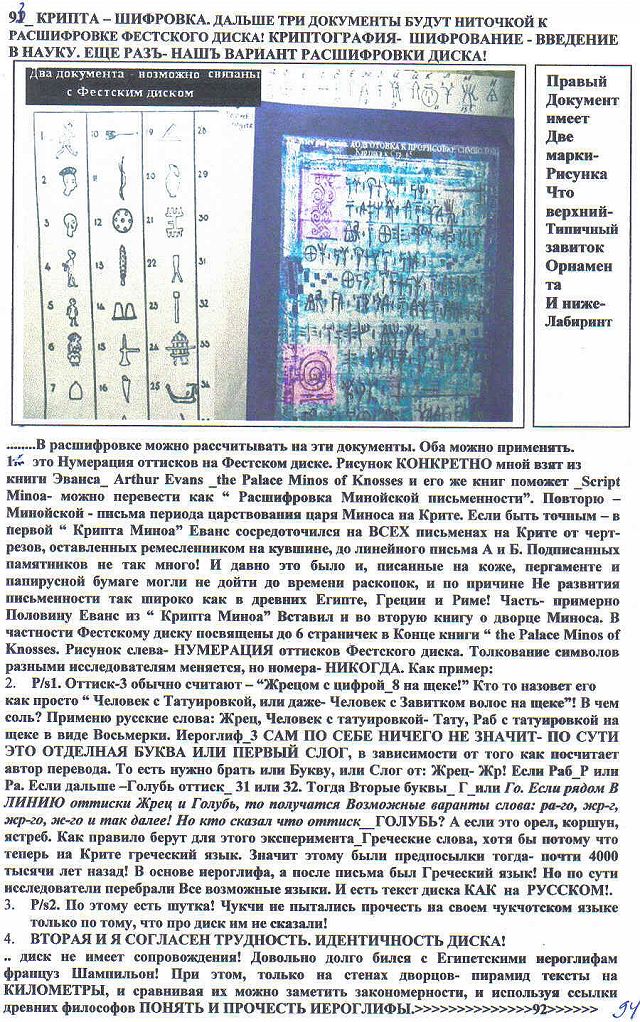 93_ КРИПТА – ШИФРОВКА. ДАЛЬШЕ ТРИ ДОКУМЕНТЫ БУДУТ НИТОЧКОЙ К
РАСШИФРОВКЕ ФЕСТСКОГО ДИСКА! КРИПТОГРАФИЯ- ШИФРОВАНИЕ - ВВЕДЕНИЕ
В НАУКУ. ЕЩЕ РАЗЪ- НАШЪ ВАРИАНТ РАСШИФРОВКИ ДИСКА!
Два документа - возможно связаны
с Фестским диском
1 10 9 28
2 11 20 29
3 12 21 30
4 13 22 31
5 14 23 32
6 15 24 33
7 16 25 34
Правый
Документ
имеет
Две
марки-
Рисунка
Что
верхний-
Типичный
завиток
Орнамен
та
И ниже-
Лабиринт
........В расшифровке можно рассчитывать на эти документы. Оба можно применять.
1. это Нумерация оттисков на Фестском диске. Рисунок КОНКРЕТНО мной взят из
книги Эванса_ Arthur Evans _the Palace Minos of Knosses и его же книг поможет _Script
Minoa- можно перевести как “ Расшифровка Минойской письменности”. Повторю –
Минойской - письма периода царствования царя Миноса на Крите. Если быть точным – в
первой “ Крипта Миноа” Еванс сосредоточился на ВСЕХ письменах на Крите от черт-
резов, оставленных ремесленником на кувшине, до линейного письма А и Б. Подписанных
памятников не так много! И давно это было и, писанные на коже, пергаменте и
папирусной бумаге могли не дойти до времени раскопок, и по причине Не развития
письменности так широко как в древних Египте, Греции и Риме! Часть- примерно
Половину Еванс из “ Крипта Миноа” Вставил и во вторую книгу о дворце Миноса. В
частности Фестскому диску посвящены до 6 страничек в Конце книги “ the Palace Minos of
Knosses. Рисунок слева- НУМЕРАЦИЯ оттисков Фестского диска. Толкование символов
разными исследователям меняется, но номера- НИКОГДА. Как пример:
2. P/s1. Оттиск-3 обычно считают – “Жрецом с цифрой_8 на щеке!” Кто то назовет его
как просто “ Человек с Татуировкой, или даже- Человек с Завитком волос на щеке”! В чем
соль? Применю русские слова: Жрец, Человек с татуировкой- Тату, Раб с татуировкой на
щеке в виде Восьмерки. Иероглиф_3 САМ ПО СЕБЕ НИЧЕГО НЕ ЗНАЧИТ- ПО СУТИ
ЭТО ОТДЕЛНАЯ БУКВА ИЛИ ПЕРВЫЙ СЛОГ, в зависимости от того как посчитает
автор перевода. То есть нужно брать или Букву, или Слог от: Жрец- Жр! Если Раб_Р или
Ра. Если дальше –Голубь оттиск_ 31 или 32. Тогда Вторые буквы_ Г_или Го. Если рядом В
ЛИНИЮ оттиски Жрец и Голубь, то получатся Возможные варанты слова: ра-го, жр-г,
жр-го, ж-го и так далее! Но кто сказал что оттиск__ГОЛУБЬ? А если это орел, коршун,
ястреб. Как правило берут для этого эксперимента_Греческие слова, хотя бы потому что
теперь на Крите греческий язык. Значит этому были предпосылки тогда- почти 4000
тысячи лет назад! В основе иероглифа, а после письма был Греческий язык! Но по сути
исследователи перебрали Все возможные языки. И есть текст диска КАК на РУССКОМ!.
3. P/s2. По этому есть шутка! Чукчи не пытались прочесть на своем чукчотском языке
только по тому, что про диск им не сказали!
4. ВТОРАЯ И Я СОГЛАСЕН ТРУДНОСТЬ. ИДЕНТИЧНОСТЬ ДИСКА!
.. диск не имеет сопровождения! Довольно долго бился с Египетскими иероглифам
француз Шампильон! При этом, только на стенах дворцов- пирамид тексты на
КИЛОМЕТРЫ, и сравнивая их можно заметить закономерности, и используя ссылки
древних философов ПОНЯТЬ И ПРОЧЕСТЬ ИЕРОГЛИФЫ.>>>>>>>>>>>>>>>92>>>>>>
94